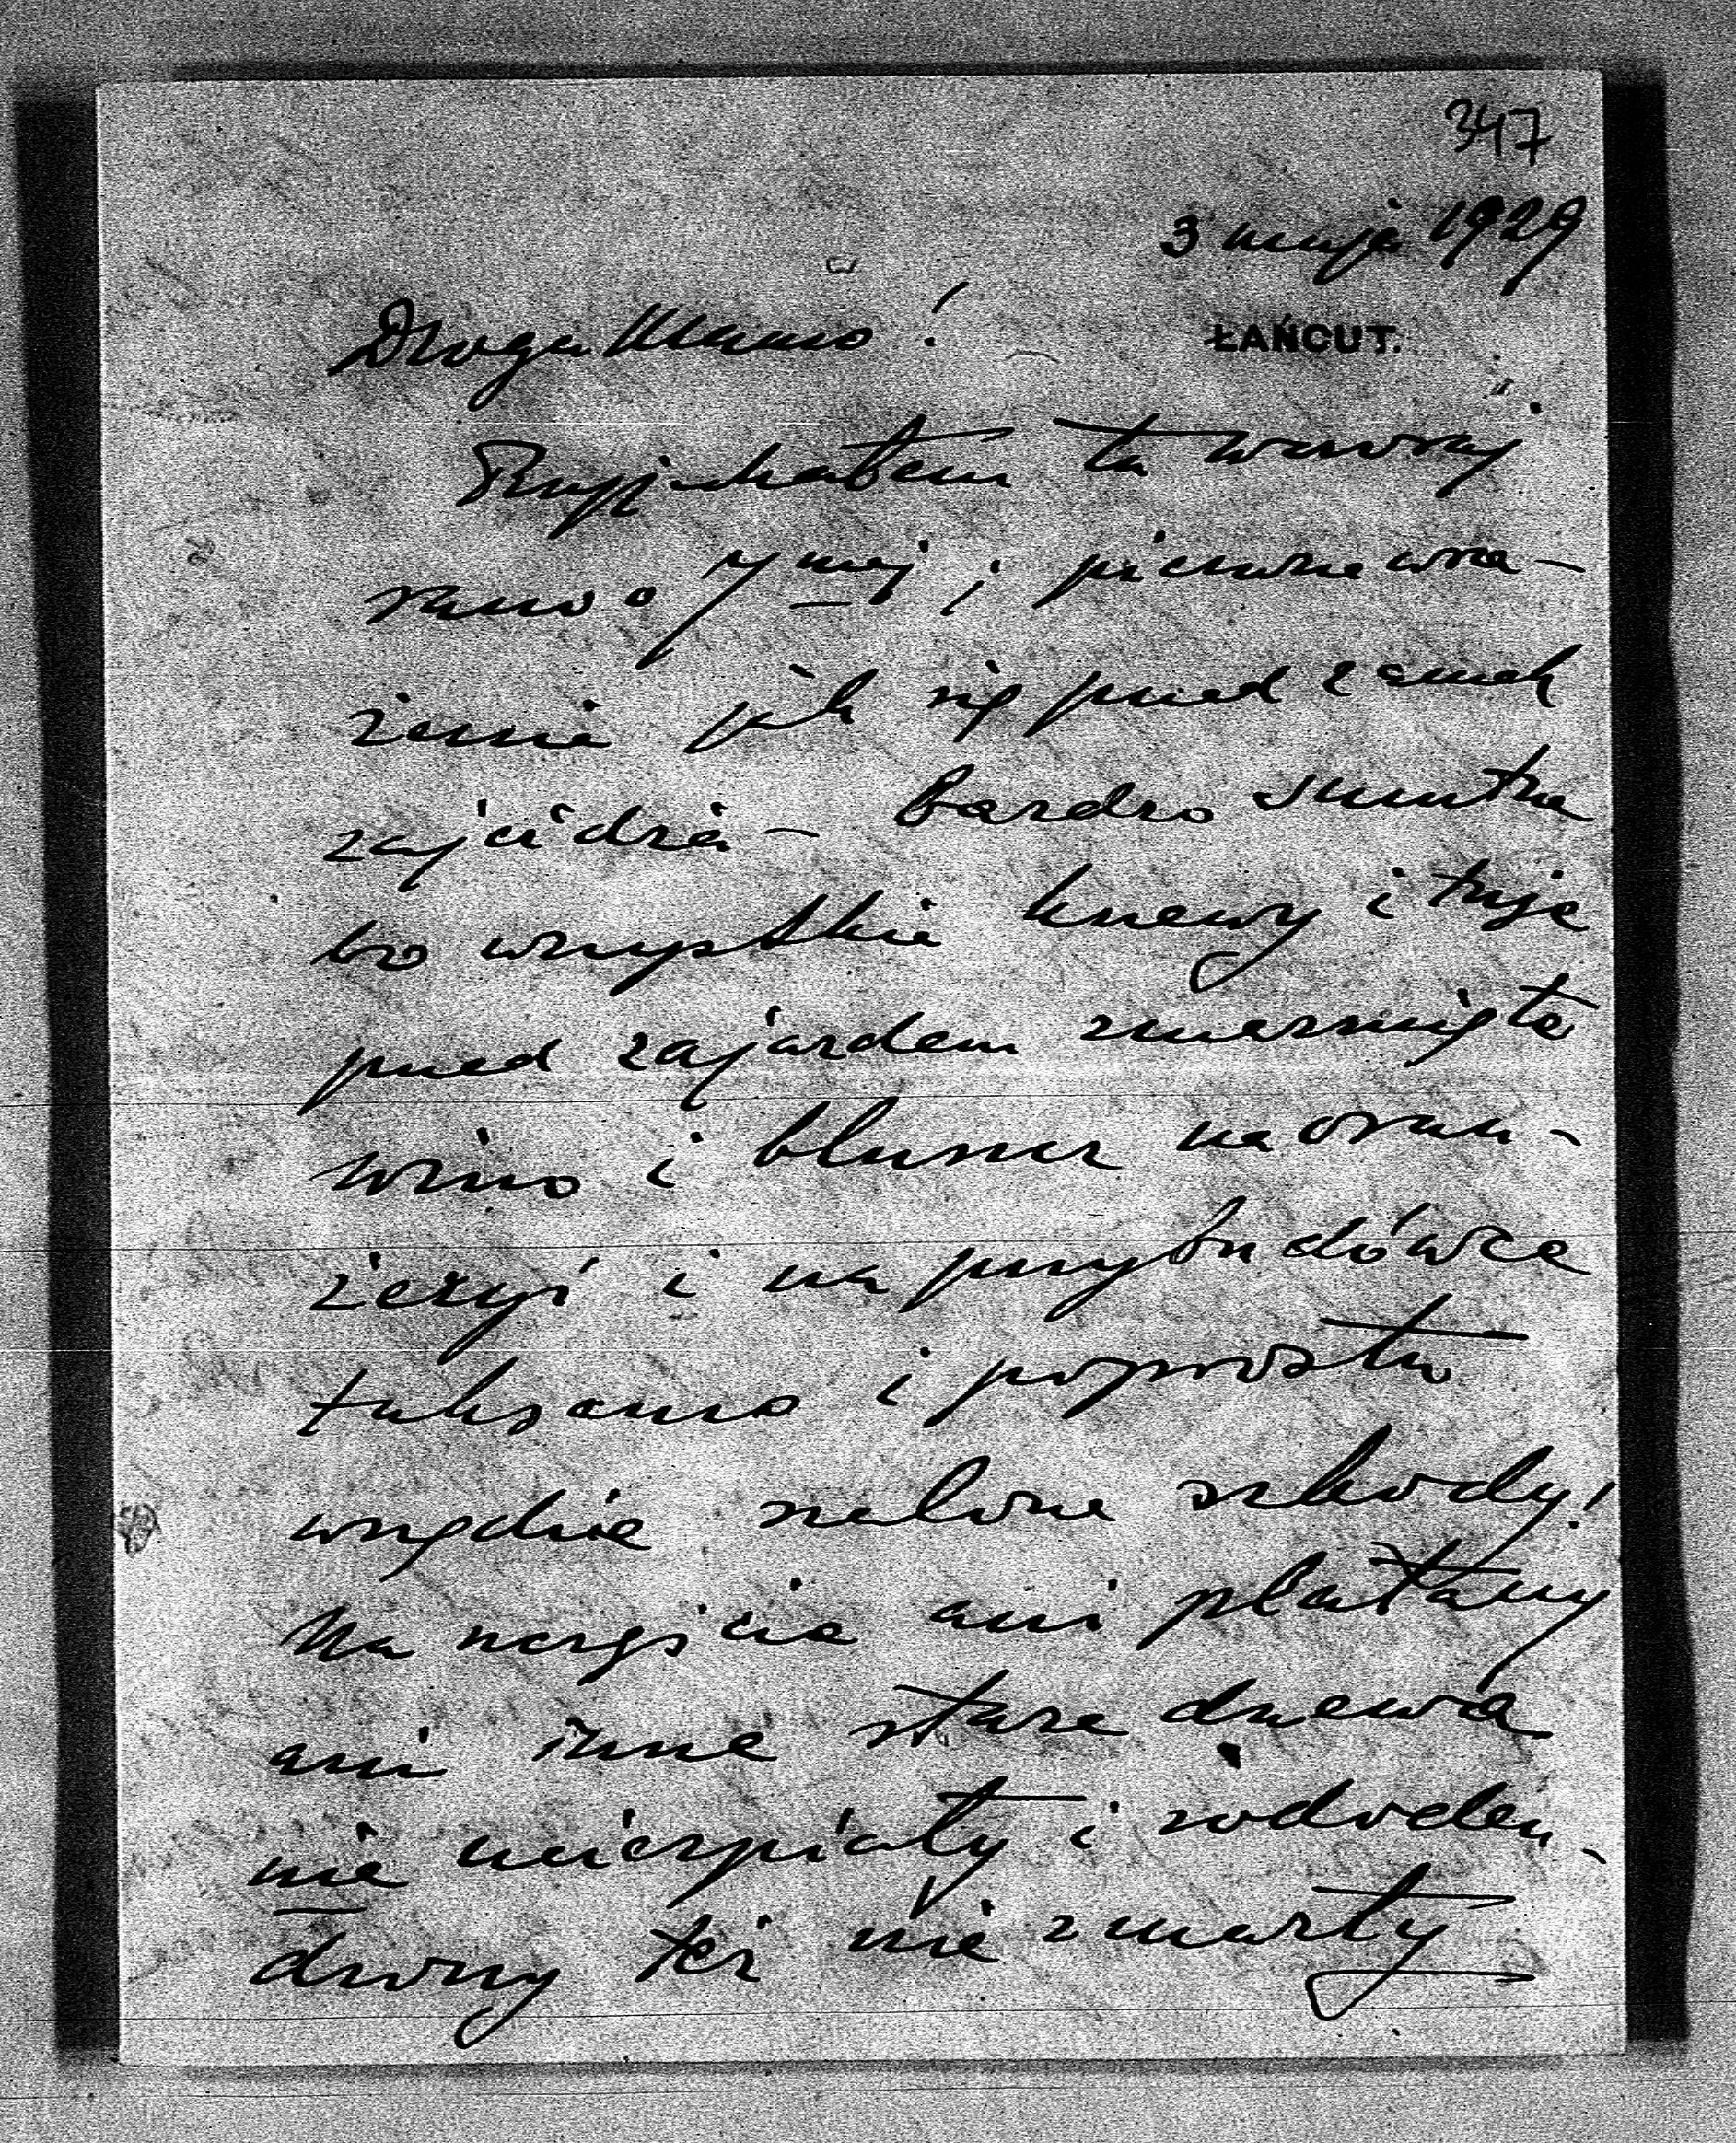 347
3 maja 1929
Droga Mamo!
ŁAŃCUT.
Przyjechałem tu wczoraj
rano o 7 mej i pierwsze wra-
żenie jak się przed zamek
zajeżdża – bardzo smutne
bo wszystkie krzewy i tuje
przed zajazdem zmarznięte
wino i bluszcz na oran-
żeryi i na przybudówce
taksamo i poprostu
wszędzie szalone szkody!
Na szczęście ani platany
ani inne stare drzewa
nie ucierpiały i rododen-
drony też nie zmarły